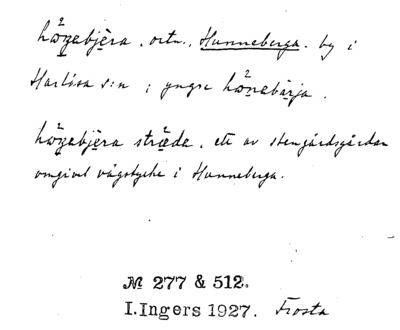 hönebjèra. ortn., Hunneberga. by i
Harlösa s:n ; yngre hönebärja.
hönebjèra stræde. ett av stengärdsgårdar
omgivet vägstycke i Hunneberga.
№ 277 & 512.
I. Ingers 1927. Frosta